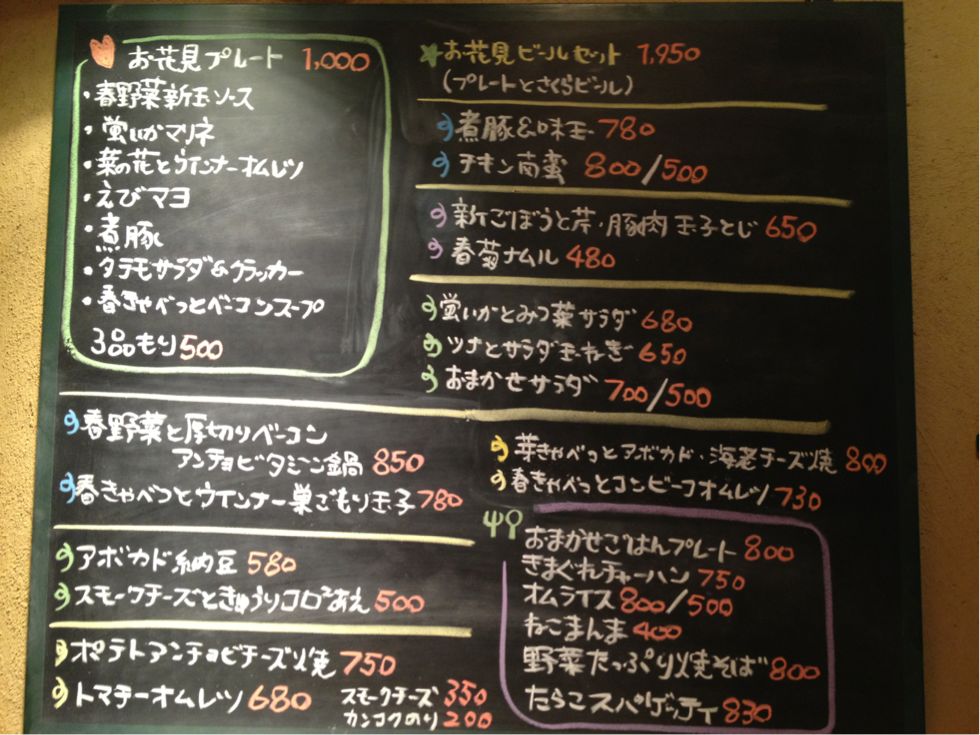 お花見プレート 1,000
・春野菜新玉ソース
・蛍いかマリネ
・菜の花とウインナーオムレツ
・えびマヨ
・煮豚
・タラモサラダ&クラッカー
・春きゃべつとベーコンスープ
3品もり500
お花見ビールセット 1,950
(プレートとさくらビール)
煮豚&味玉 780
チキン南蛮 800/500
新ごぼうと芹・豚肉玉子とじ 650
春菊ナムル 480
蛍いかとみつ葉サラダ 680
ツナとサラダ玉ねぎ 650
おまかせサラダ 700/500
春野菜と厚切りベーコン
アンチョビタジーン鍋 850
春きゃべつとウインナー巣ごもり玉子 780
芽きゃべつとアボカド・海老チーズ焼 800
春きゃべつとコンビーフオムレツ 730
アボカド納豆 580
スモークチーズときゅうりコロコロあえ 500
ポテトアンチョビチーズ焼 750
トマチーオムレツ 680
スモークチーズ 350
カンコクのり 200
おまかせごはんプレート 800
きまぐれチャーハン 750
オムライス 800/500
ねこまんま 400
野菜たっぷり焼そば 800
たらこスパゲッティ 830